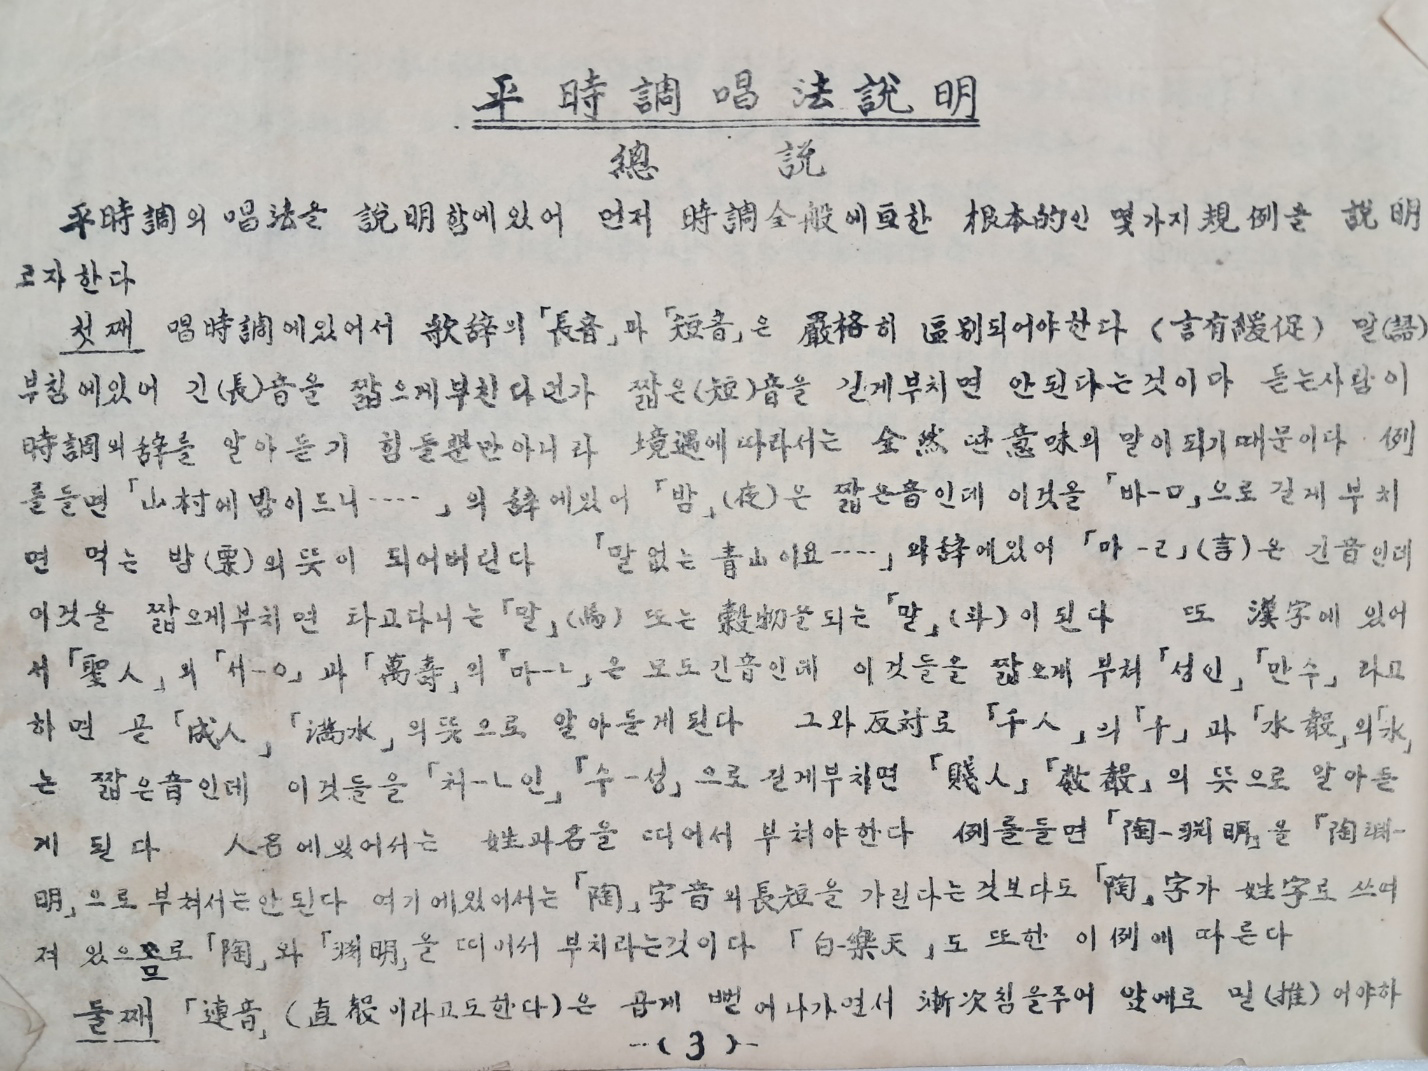 平時調唱法說明
總 說
平時調의 唱法을 說明함에있어 먼저 時調全般에亘한 根本的인 몇가지規例를 說明
로자한다
첫째 唱時調에있어서 歌辞의「長音」과「短音」은 嚴格히 區別되어야한다 (言有緩促) 말(語)
부침에있어 긴(長)音을 짧으게부친다던가 짧은(短)音을 길게부치면 안된다는것이다 듣는사람이
時調의辞를 알아듣기 힘들뿐만아니라 境遇에따라서는 全然딴意味의 말이되기때문이다 例
를들면「山村에밤이드니····」의 辞에있어「밤」(夜)은 짧은音인데 이것을「바-ㅁ」으로길게 부치
면 먹는 밤(栗)의뜻이 되어버린다 「말없는青山이요····」의辞에있어「마-ㄹ」(言)은 긴音인데
이것을 짧으게부치면 타고다니는「말」(馬) 또는 穀物을되는「말」(斗)이된다 또 漢字에 있어
서「聖人」의「서-ㅇ」과「萬壽」의「마-ㄴ」은 모도긴音인데 이것들을 짧으게 부쳐「성인」「만수」라고
하면 곧「成人」「満水」의뜻으로 알아듣게된다 그와反対로「千人」의「千」과「水聲」의「水」
는 짧은音인데 이것들을「처-ㄴ인」「수-성」으로길게부치면「賤人」「數聲」의 뜻으로 알아듣
게 된다 人名에있어서는 姓과名을 띠어서 부쳐야한다 例를들면「陶-渊明」을「陶渊-
明」으로 부쳐서는안된다 여기에있어서는「陶」字音의長短을 가린다는것보다도「陶」字가 姓字로쓰여
져 있으므로「陶」와「渊明」을 띠어서 부치라는것이다「白-樂天」도 또한 이例에 따른다
둘째「連音」(直聲이라고도한다)은 곱게 뻗어나가면서 漸次힘을주어 앞에로 밀(推)어야하
-(3)-